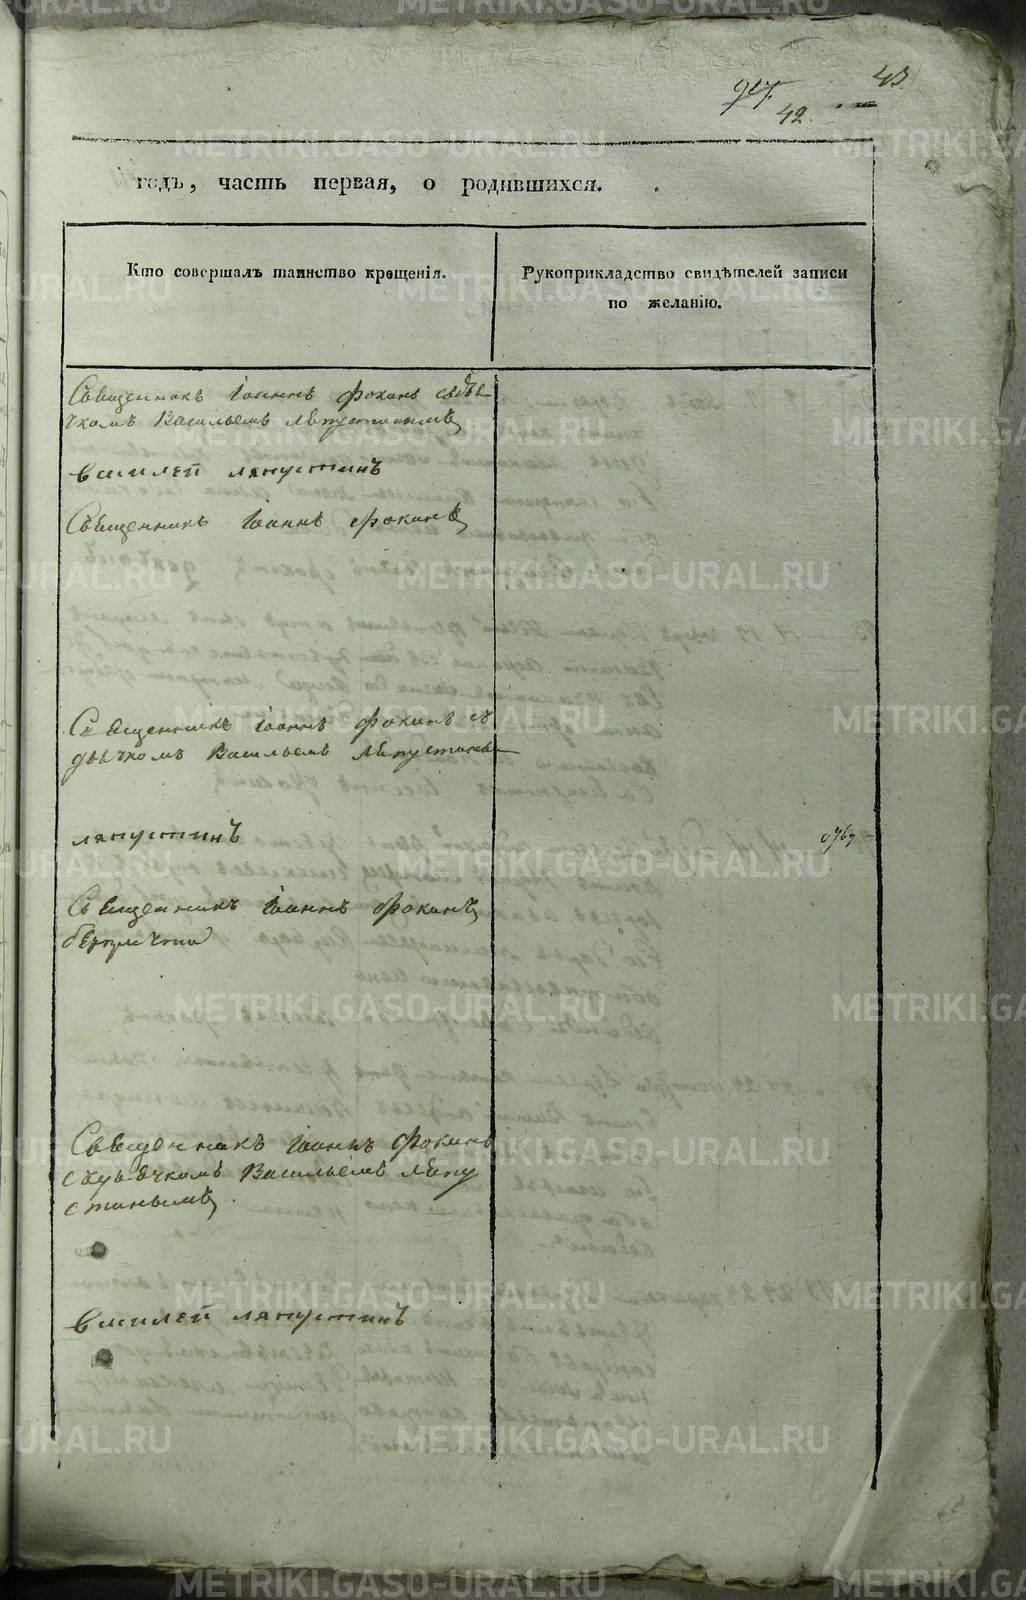 43
42
годъ, часть первая, о родившихся.
Кто совершалъ таинство крещенія.
Рукоприкладство свидѣтелей записи
по желанію.
Священникъ Іоаннъ Фокинъ съ дья
чкомъ Васильемъ Лапустинымъ
василей лапустинъ
Священникъ Іоаннъ Фокинъ
Священникъ Іоаннъ Фокинъ съ
дьячкомъ Васильемъ Лапустины
лапустинъ
Священникъ Іоаннъ Фокинъ
безъ причта
Священникъ Іоаннъ Фокинъ
съ дьячкомъ Васильемъ Лапу
стинымъ
василей лапустинъ
METRIKI.GASO-URAL.RU